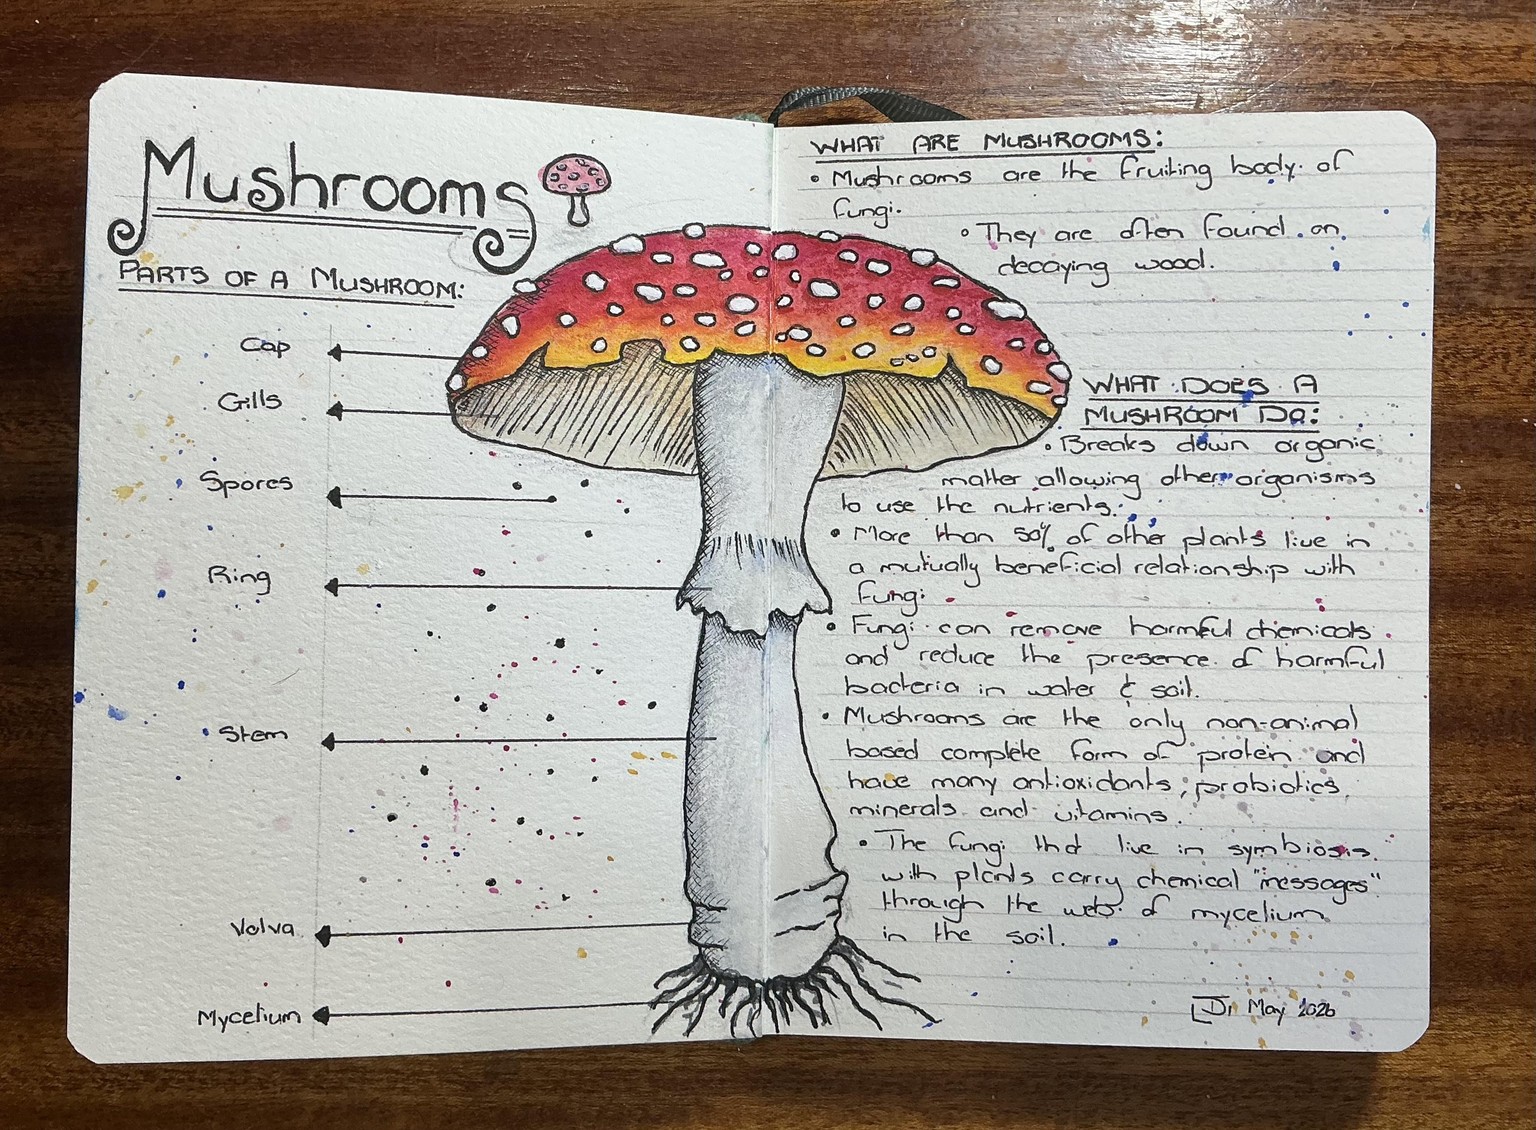 Mushrooms
PARTS OF A MUSHROOM:
Cap
Gills
Spores
Ring
Stem
Volva
Mycelium
WHAT ARE MUSHROOMS:
• Mushrooms are the fruiting body of
fungi.
• They are often found on
decaying wood.
WHAT DOES A
MUSHROOM DO:
• Breaks down organic
matter allowing other organisms
to use the nutrients.
• More than 50% of other plants live in
a mutually beneficial relationship with
fungi
• Fungi can remove harmful chemicals
and reduce the presence of harmful
bacteria in water & soil.
• Mushrooms are the only non-animal
based complete form of protein and
have many antioxidants, probiotics,
minerals and vitamins.
• The fungi that live in symbiosis
with plants carry chemical "messages"
through the web of mycelium
in the soil.
Di May 2026